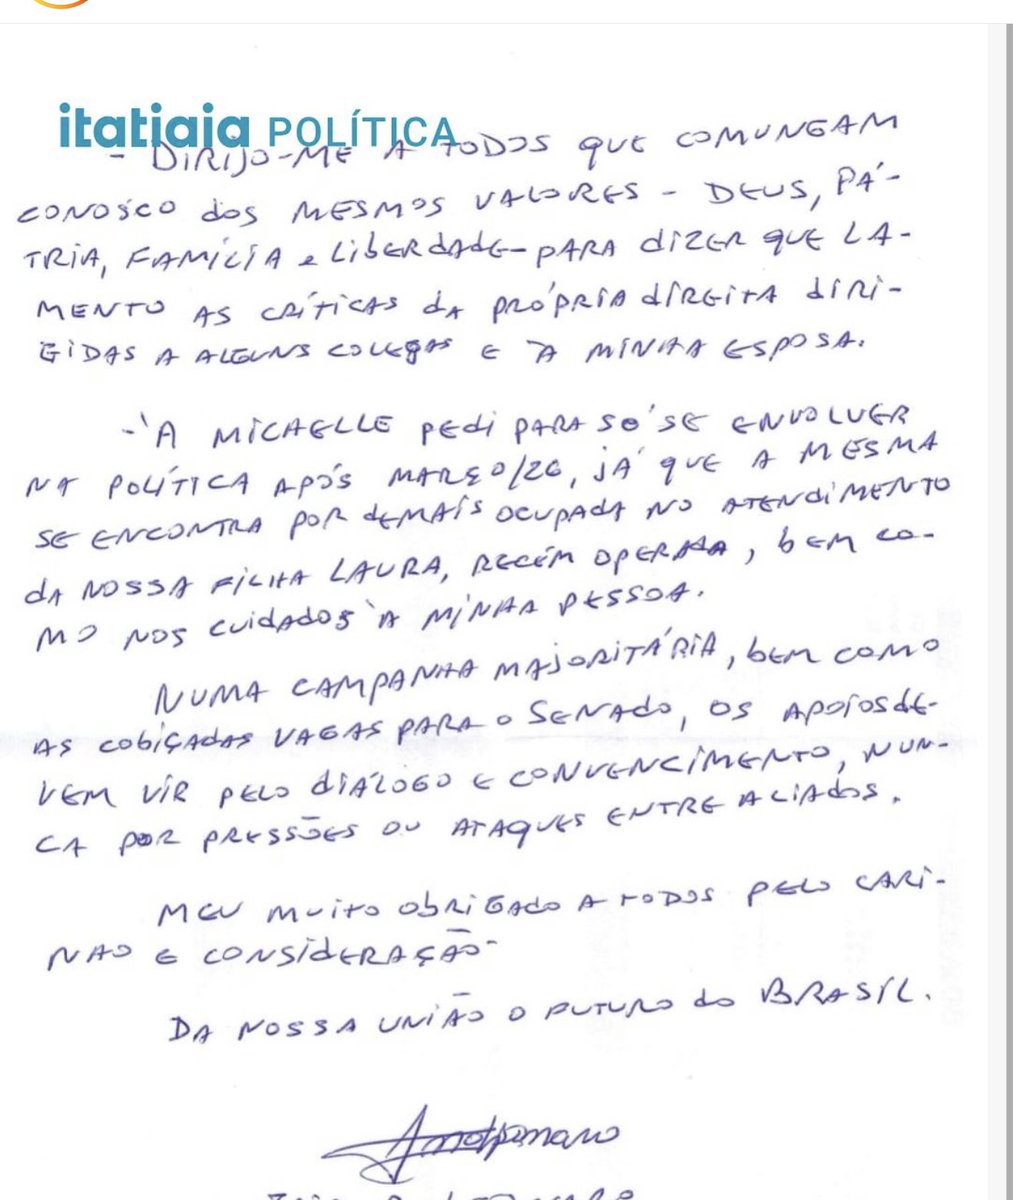 itatiaia POLÍTICA
- DIRIJO-ME A TODOS QUE COMUNGAM
CONOSCO dOS MESMOS VALORES - DEUS, PÁ-
TRIA, FAMÍLIA e LIBERDADE - PARA DIZER QUE LA-
MENTO AS CRÍTICAS dA PRÓPRIA DIREITA DIRI-
GIDAS A ALGUNS COLEGAS E À MINHA ESPOSA.
- À MICHELLE PEDI PARA SÓ SE ENVOLVER
NA POLÍTICA APÓS MARÇO/26, JÁ QUE A MESMA
SE ENCONTRA POR DEMAIS OCUPADA NO ATENDIMENTO
DA NOSSA FILHA LAURA, RECÉM OPERADA, BEM CO-
MO NOS CUIDADOS À MINHA PESSOA.
NUMA CAMPANHA MAJORITÁRIA, BEM COMO
AS COBIÇADAS VAGAS PARA O SENADO, OS APOIOS DE-
VEM VIR PELO DIÁLOGO E CONVENCIMENTO, NUN-
CA POR PRESSÕES OU ATAQUES ENTRE ALIADOS.
MEU MUITO OBRIGADO A TODOS PELO CARI-
NHO E CONSIDERAÇÃO
DA NOSSA UNIÃO O FUTURO DO BRASIL.